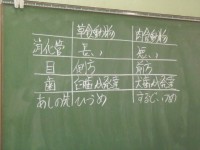 草食動物 肉食動物
消化管 長い 短い
目 側方 前方
歯 臼歯が発達 犬歯が発達
あしの爪 ひづめ するどいつめ